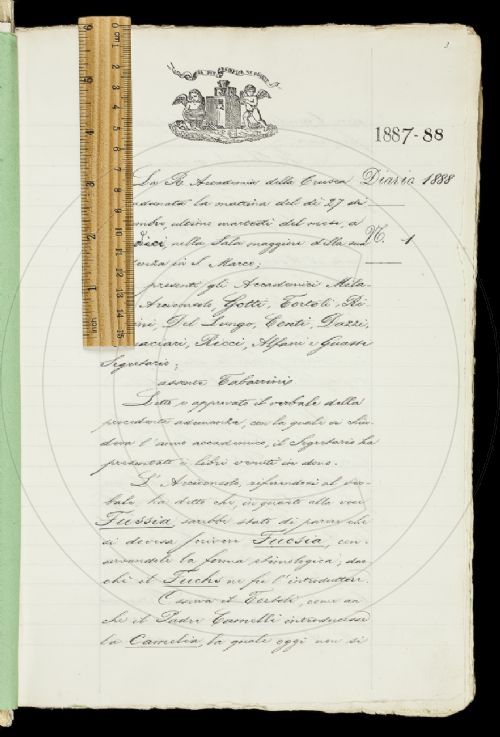 3
1887-88
Diario 1888
N. 1
La R. Accademia della Crusca
adunata la mattina del dì 27 di
ultimo martedì del mese, a
dici, nella Sala maggiore della sua
in S. Marco;
presenti gli Accademici
Arciconsolo, Gotti, Tortoli, Ri-
ni, Del Lungo, Conti, Dazzi,
Rocci, Alfani e Guasti
Segretario;
assente Tabarrini.
Letto e approvato il verbale della
precedente adunanza, con la quale si chiu-
deva l'anno accademico, il Segretario ha
presentato i libri venuti in dono.
L'Arciconsolo, riferendosi al ver-
bale, ha detto che, in quanto alla voce
Fussia, sarebbe stato di parere che
si dovesse scrivere Fucsia, con-
servandole la forma etimologica; dac-
chè il Fuchs ne fu l'introduttore.
Osserva il Tortoli, come an-
che il Padre Camelli introducesse
la Camelia, la quale oggi non si
cm 0 1 2 3 4 5 6 7 8 9 10 11 12 13 14 15
inch 1